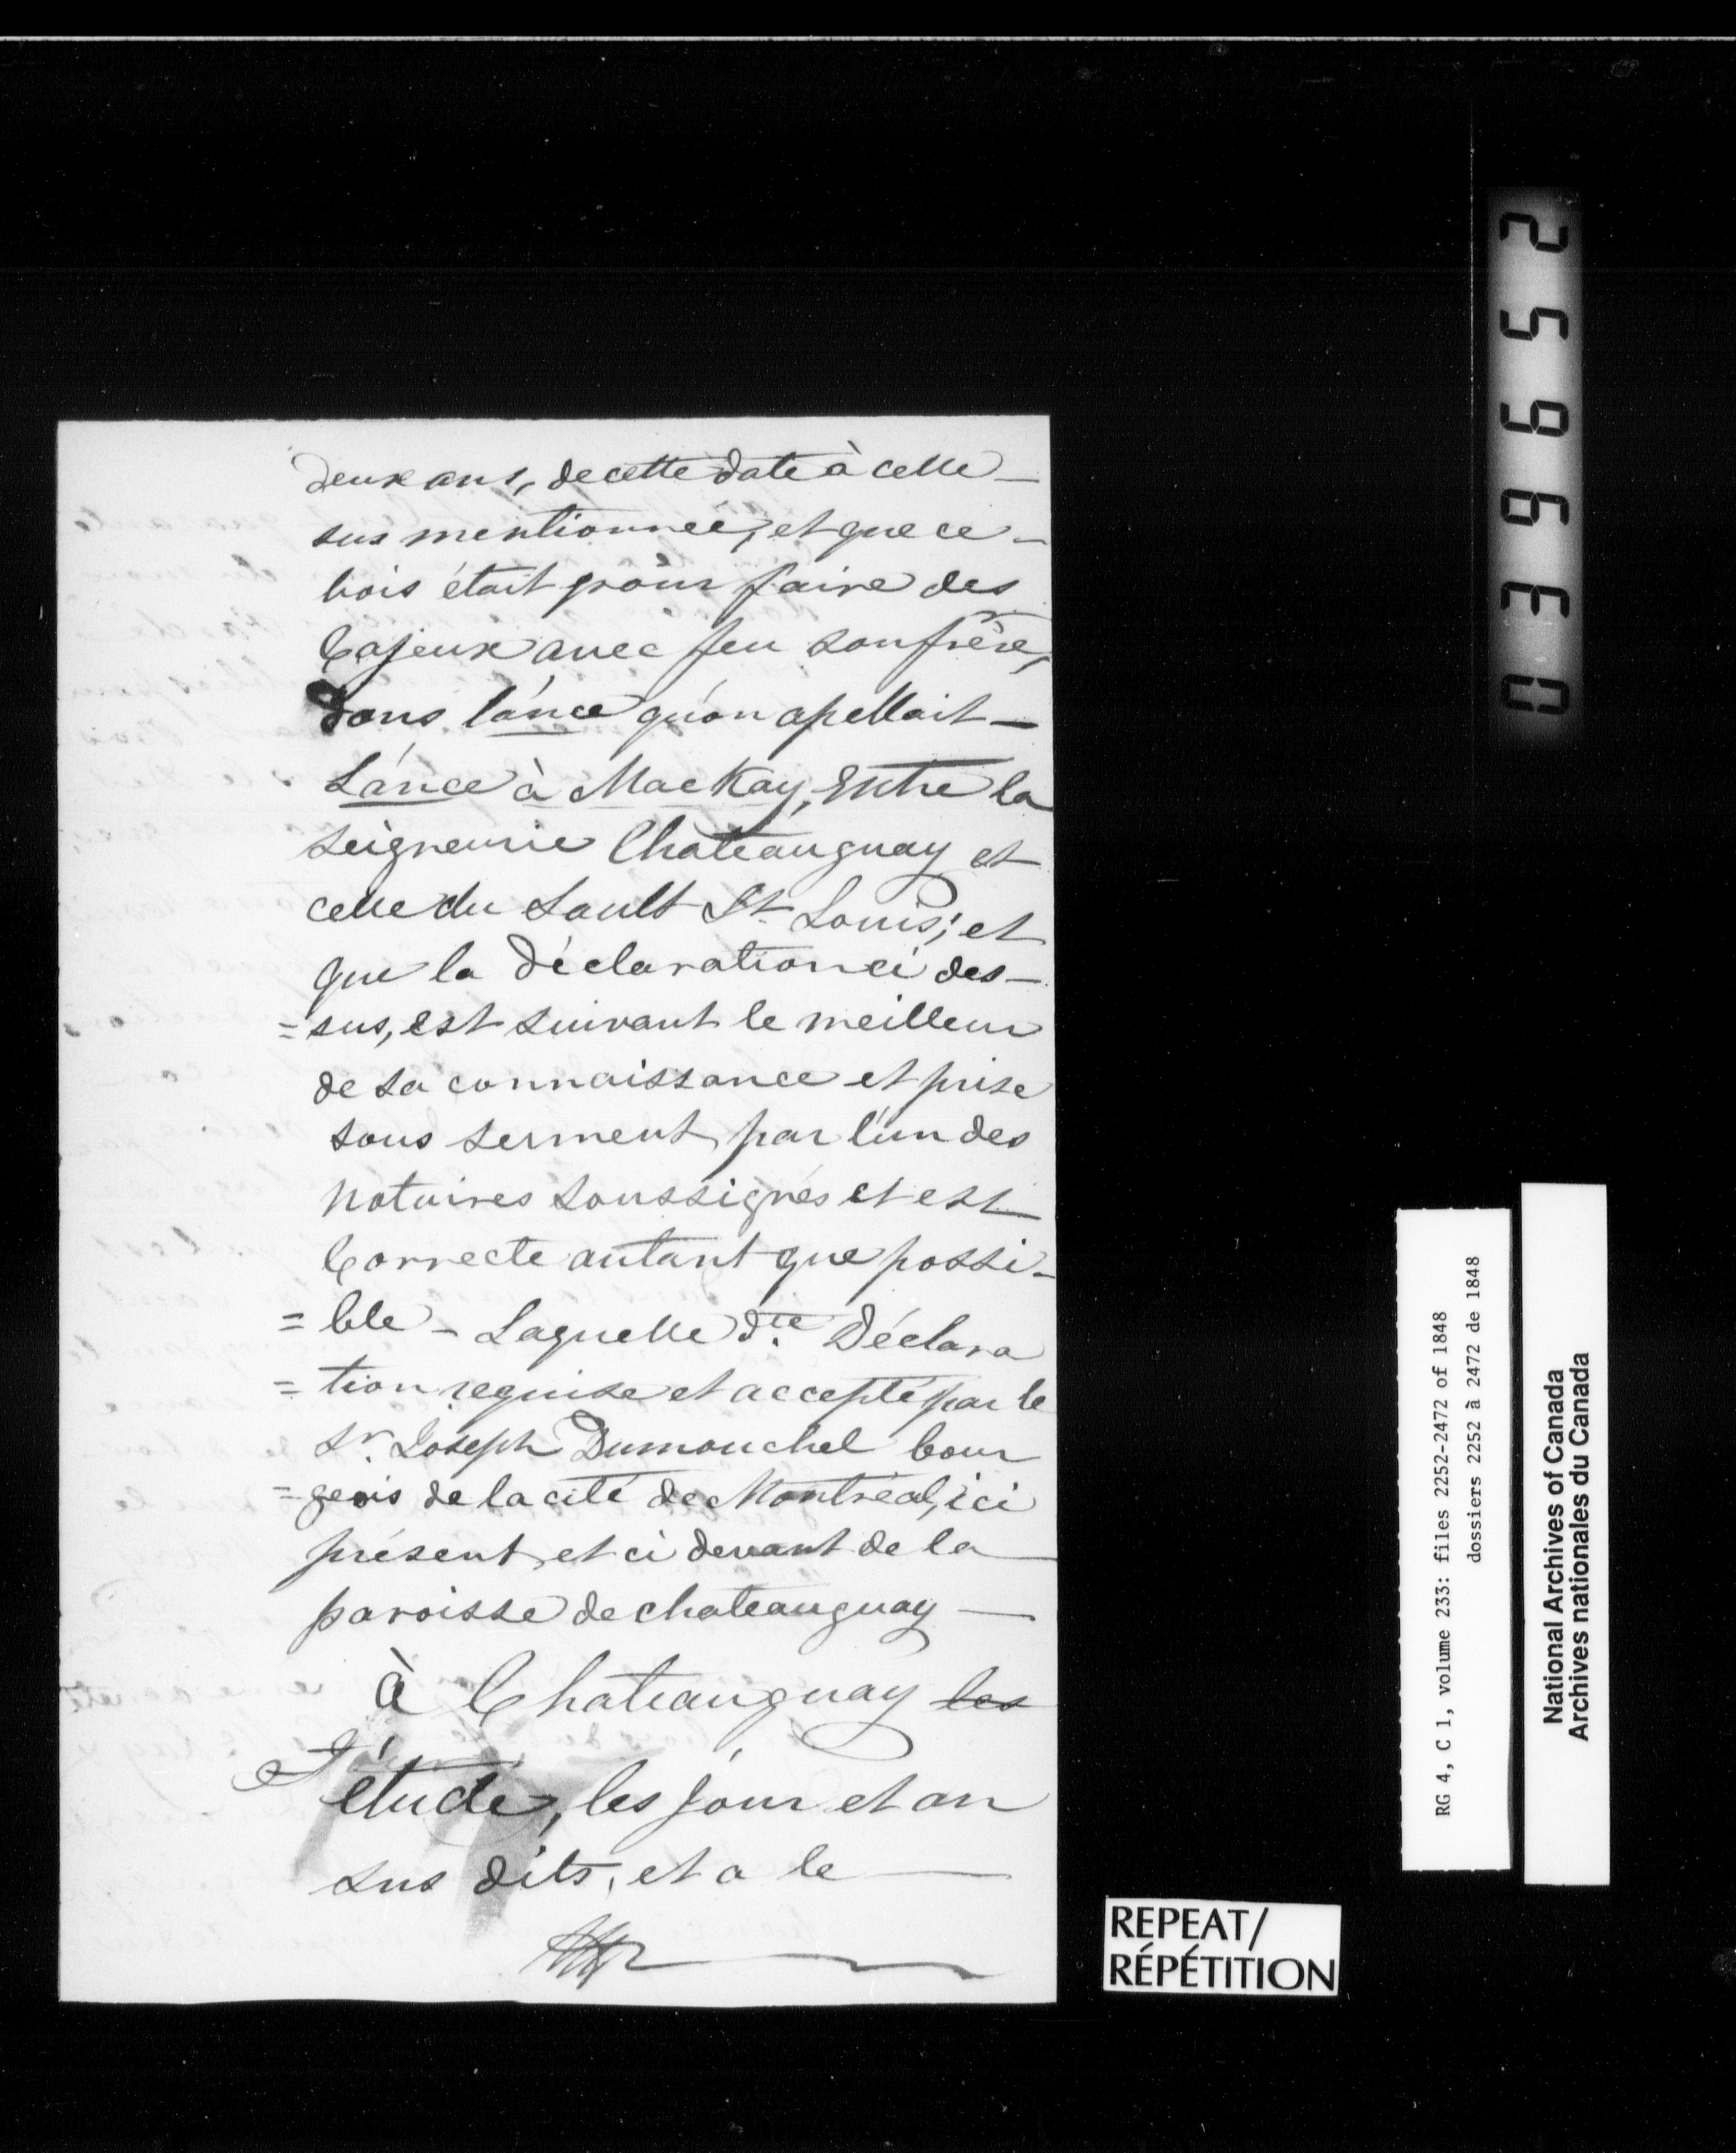 deux ans, de cette date à celle –
sus mentionnee, et que ce –
bois était pour faire des
Cajeux avec feu son frère,
dans l'ánce qu'on apellait –
L'ánce à MacKay, Entre la
seigneurie Chateauguay et
celle du Sault St. Louis; et
que la Déclaration ci des –
= sus, est suivant le meilleur
de sa connaissance et prise
sous serment par l'un des
Notaires soussignés et est
Correcte autant que possi –
= ble – Laquelle dte. Déclara
= tion requise et accepté par le
Sr. Joseph Dumouchel bour
= geois de la cité de Montréal, ici
présent, et ci devant de la
paroisse de chateauguay —
à Chateauguay les
étude, les jour et an
sus dits, et a le —
039652
RG 4, C 1, volume 233: files 2252-2472 of 1848
dossiers 2252 à 2472 de 1848
National Archives of Canada
Archives nationales du Canada
REPEAT/
RÉPÉTITION